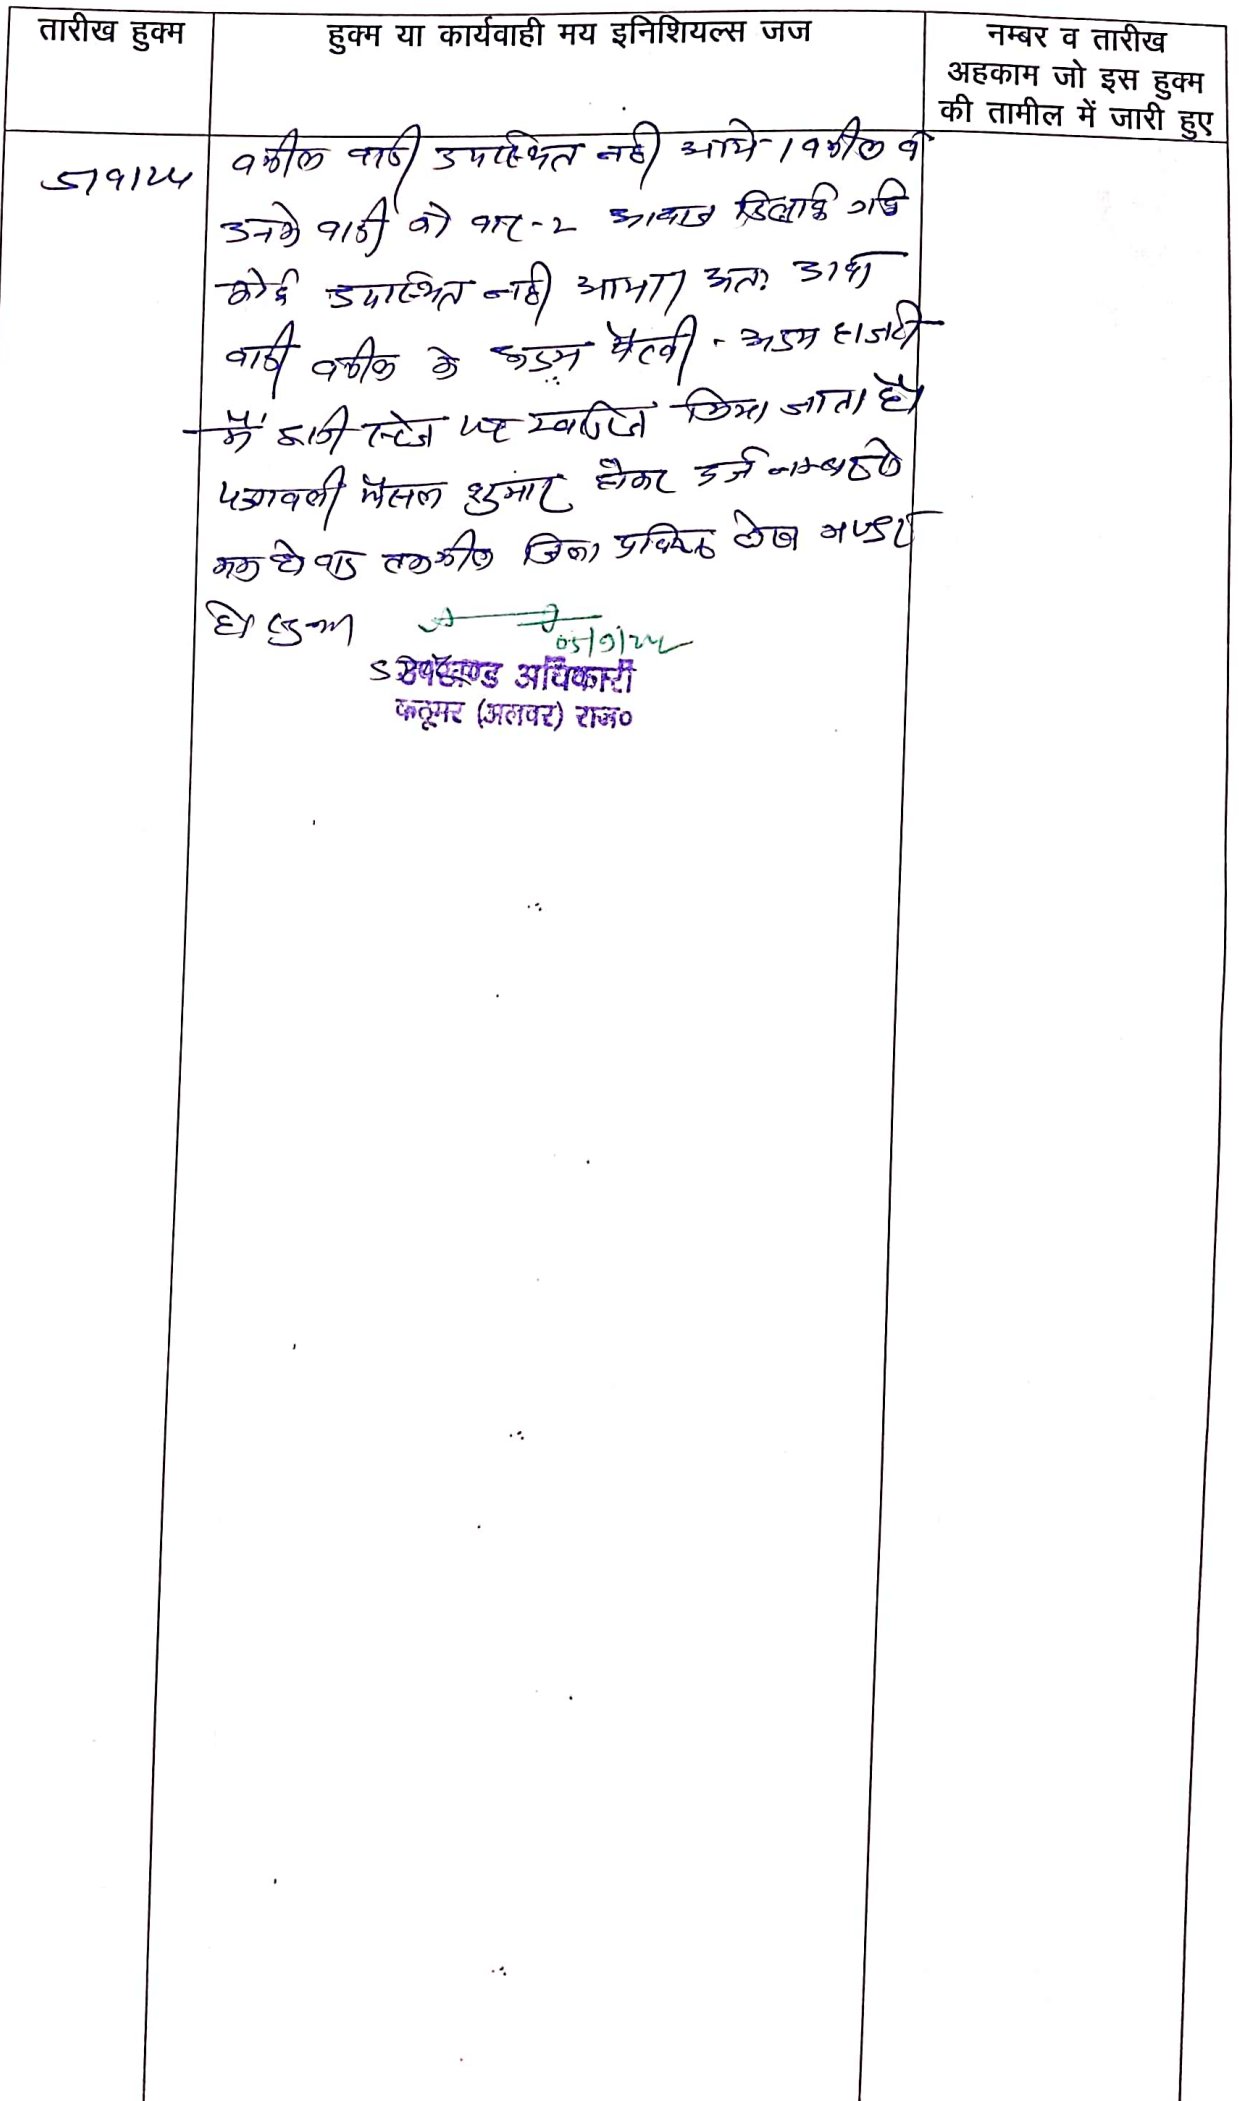 तारीख हुक्म
हुक्म या कार्यवाही मय इनिशियल्स जज
नम्बर व तारीख
अहकाम जो इस हुक्म
की तामील में जारी हुए
5/9/24
वकील वादी उपस्थित नही आये। वकील व
उनके वादी को बार-2 आवाज दिलाई गई
कोई उपस्थित नही आया। अतः
वादी वकील के अदम पैरवी - अदम हाजरी
में इसी स्टेज पर खारिज किया जाता है।
पत्रावली फैसल शुमार होकर दर्ज नम्बर से
कम हो बाद तकमील जिला लेख भण्डार
हो
05/9/24
उपखण्ड अधिकारी
कठूमर (अलवर) राज०